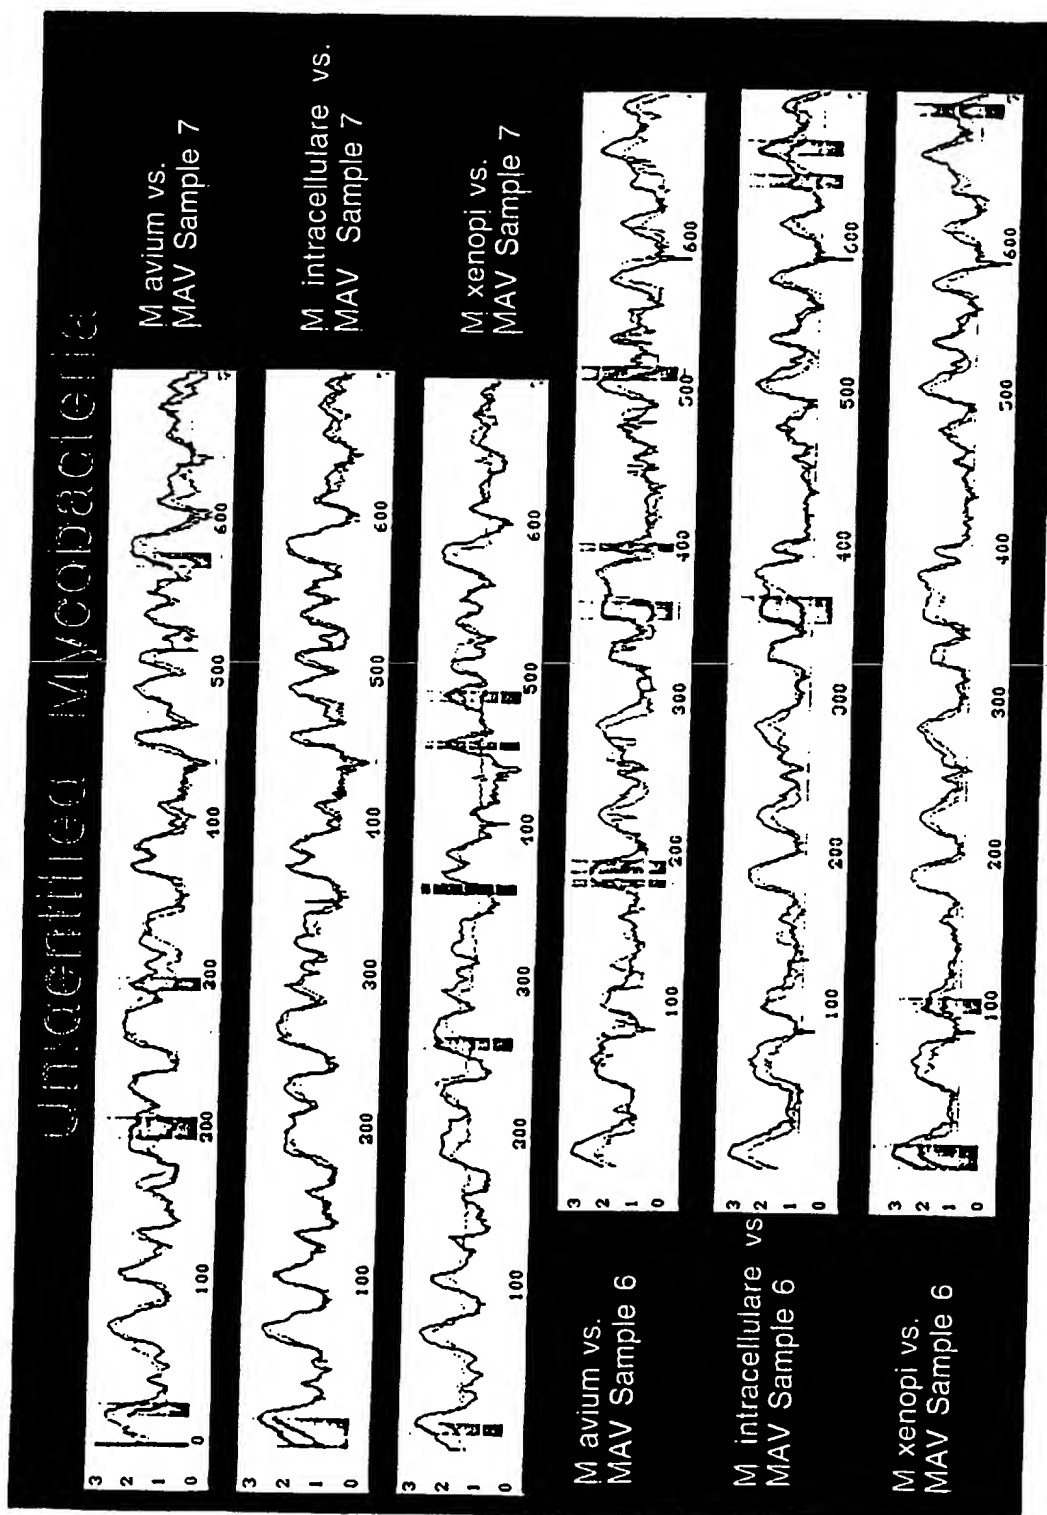 Unidentified Mycobacteria
M avium vs.
MAV Sample 7
3 2 1 0
0 100 200 300 400 500 600
M intracellulare vs.
MAV Sample 7
3 2 1 0
100 200 300 400 500 600
M xenopi vs.
MAV Sample 7
3 2 1 0
100 200 300 400 500 600
M avium vs.
MAV Sample 6
3 2 1 0
100 200 300 400 500 600
M intracellulare vs
MAV Sample 6
3 2 1 0
100 200 300 400 500 600
M xenopi vs.
MAV Sample 6
3 2 1 0
100 200 300 400 500 600